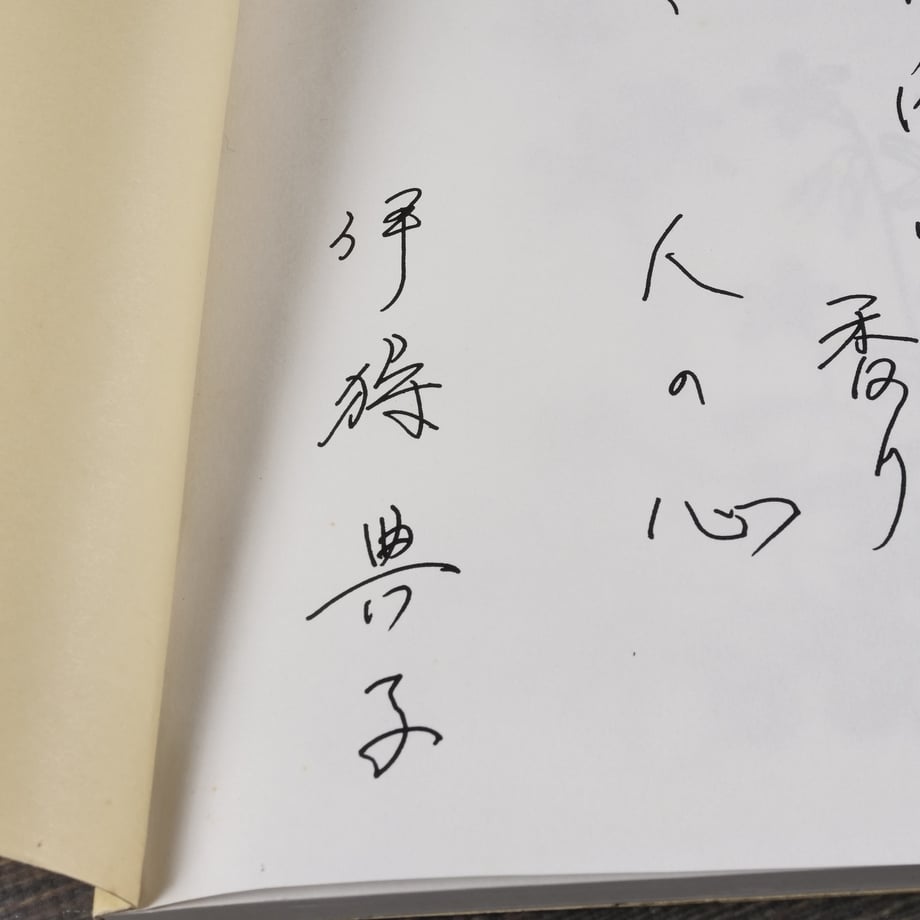 香り
人の心
伊狩典子